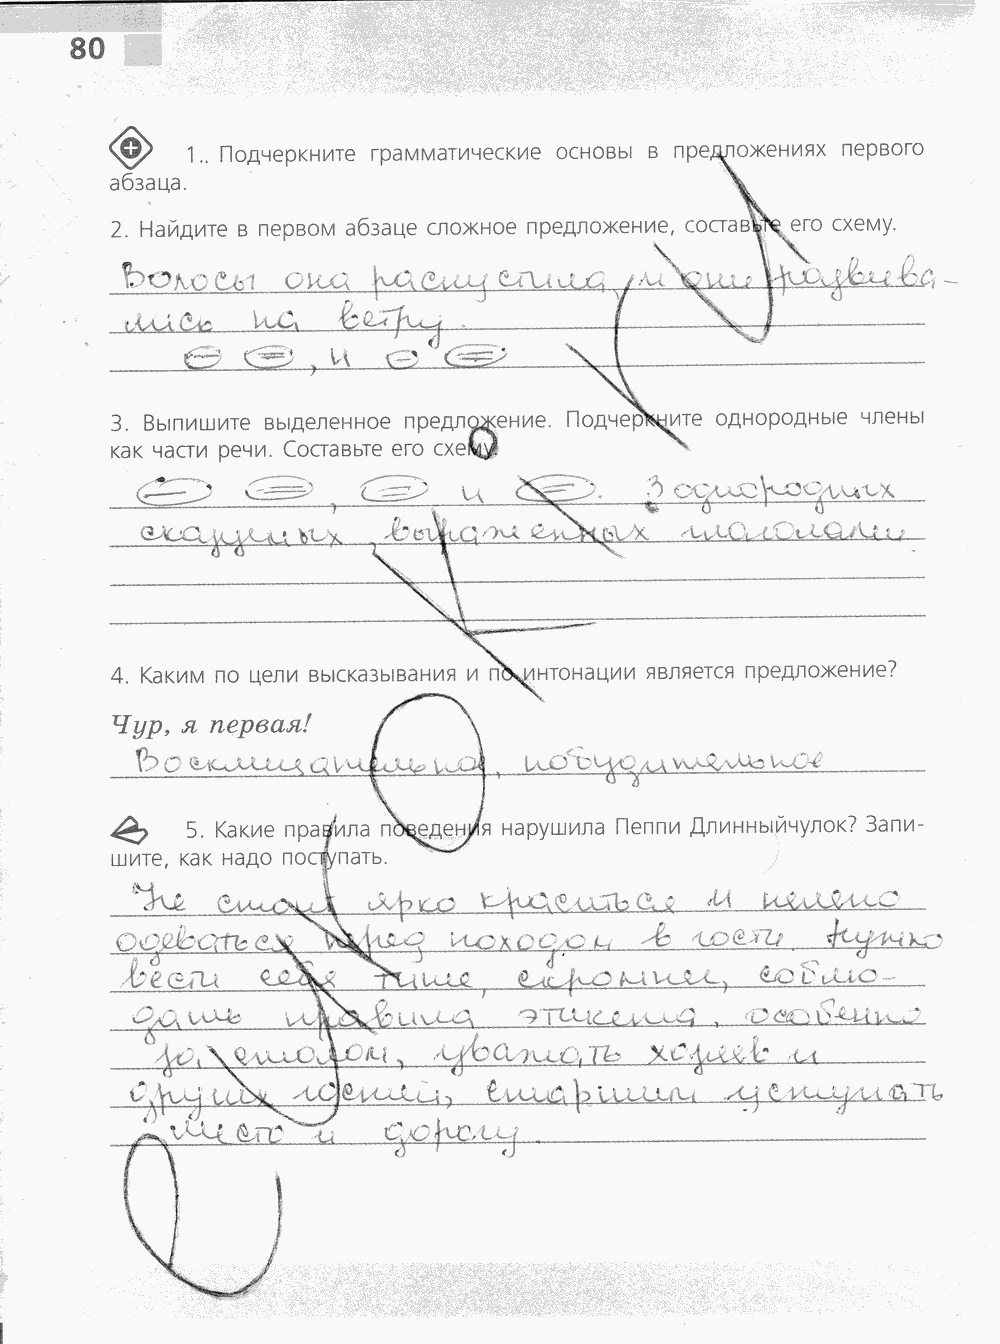 80
1.. Подчеркните грамматические основы в предложениях первого
абзаца.
2. Найдите в первом абзаце сложное предложение, составьте его схему.
Волосы она распустила, и они развева-
лись на ветру.
, и
3. Выпишите выделенное предложение. Подчеркните однородные члены
как части речи. Составьте его схему.
, и . 3 однородных
сказуемых, выраженных глаголами
4. Каким по цели высказывания и по интонации является предложение?
Чур, я первая!
Восклицательное, побудительное
5. Какие правила поведения нарушила Пеппи Длинныйчулок? Запи-
шите, как надо поступать.
Не стоит ярко краситься и нелепо
одеваться перед походом в гости. Нужно
вести себя тише, скромнее, соблю-
дать правила этикета, особенно
за столом, уважать хозяев и
других гостей, старшим уступать
место и дорогу.